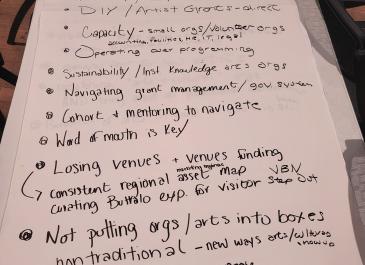 DIY / Artist Grants - direct
Capacity - small orgs/volunteer orgs
accounting, facilities, HR, IT, legal
Operating over programming
Sustainability / Inst Knowledge arts orgs
Navigating grant management / gov. system
Cohort + mentoring to navigate
Word of mouth is Key
Losing venues + venues funding
consistent regional asset map VBN
curating Buffalo exp. for visitor Step Out
Not putting orgs/arts into boxes
nontraditional - new ways arts/cultures
show up